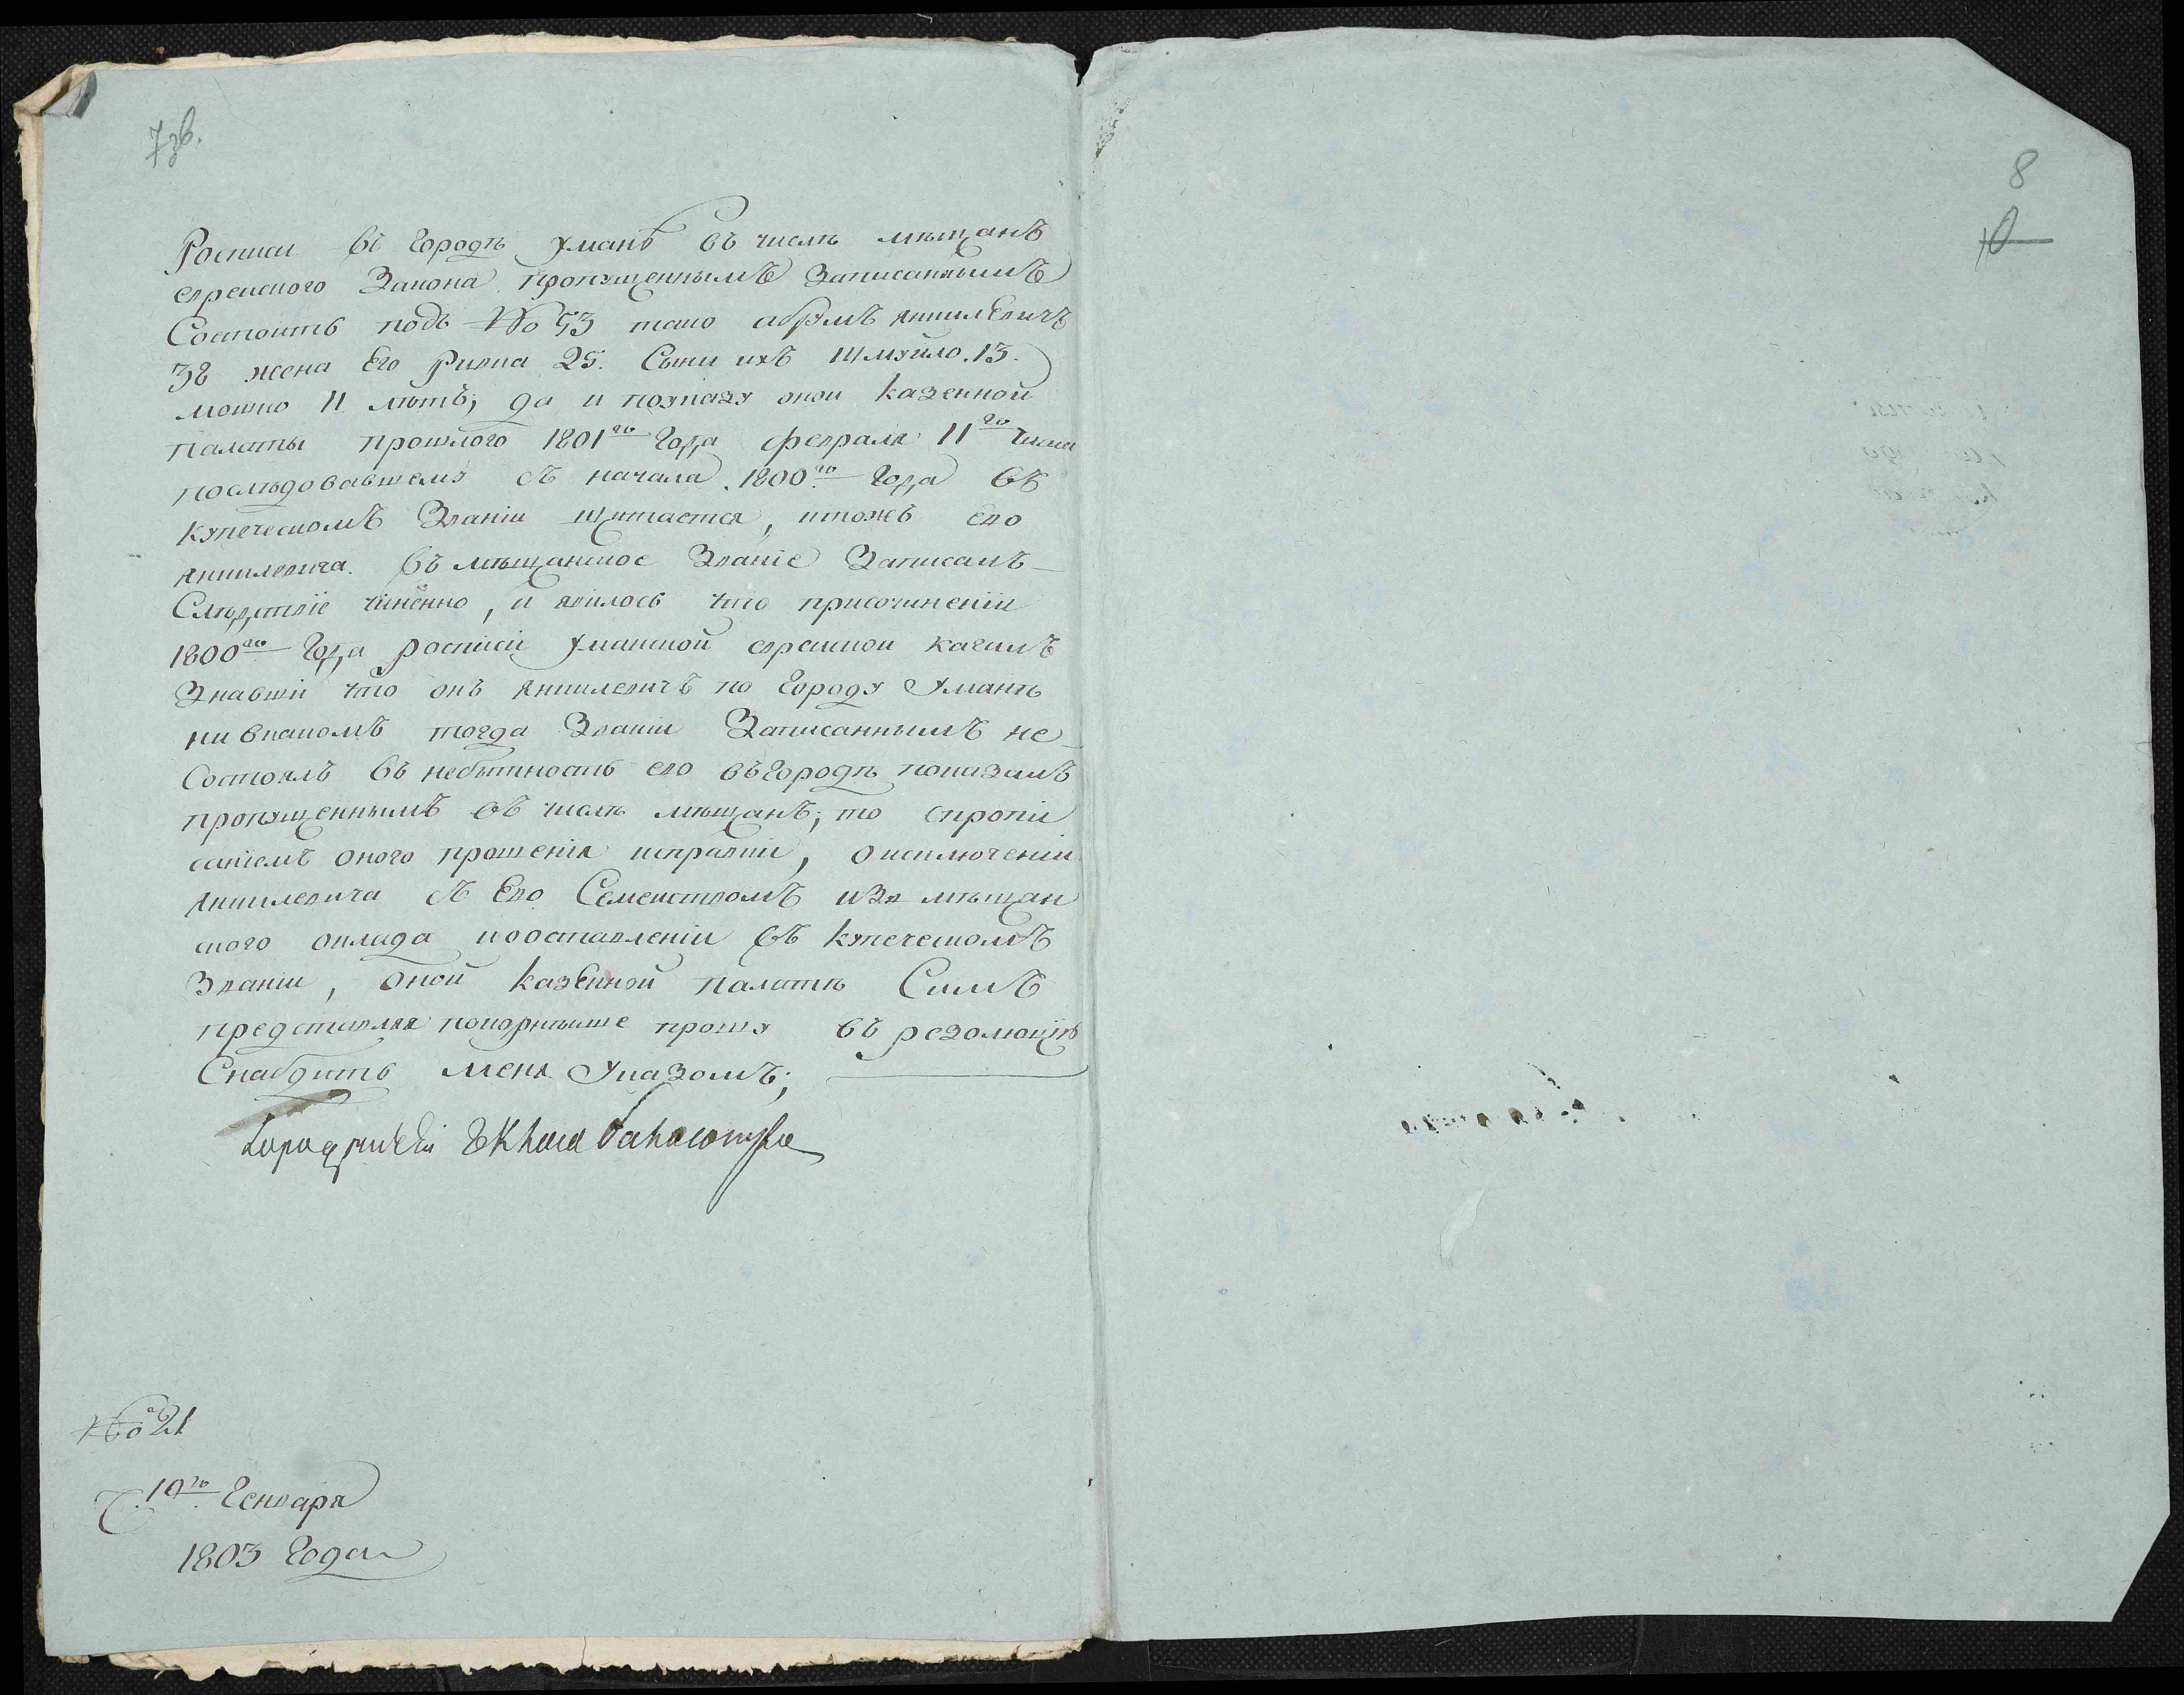 7зв.
8
10
Росписи въ городѣ уманѣ въ числѣ мѣщанъ
еврейского Закона пропущеннымъ Записаннымъ
Состоитъ подъ No 53 тако абрумъ Аншилевичъ
38 жена Его Ривка 25. Сыни ихъ Шмуйло. 13.
мошко 11 лѣтъ; да и поуказу оной казенной
палаты прошлого 1801го года февраля 11го числа
последовавшему съ начала 1800го года въ
купеческомъ Званіи щитается, ктожъ Его
Аншилевича въ мѣщанское Званіе Записалъ
Слѣдствіе чиненно, и явилось что присочиненіи
1800го года росписи уманской еврейской кагалъ
Знавши что онъ Аншилевичъ по городу Уманѣ
ни вкакомъ тогда Званіи Записаннымъ не
Состоялъ въ небытность его въгородѣ показалъ
пропущеннымъ въ числѣ мѣщанъ; то спропи
саніемъ оного прошенія исправки, оисключеніи
Аншилевича съ Его Семействомъ изъ мѣщан
ского оклада иооставленіи въ купеческомъ
Званіи, оной казенной палатѣ Симъ
представляя покорнѣйше прошу въ резолюціѣ
Снабдить меня Указомъ;
Городничей
No 21
Ч. 10го Генваря
1803 года